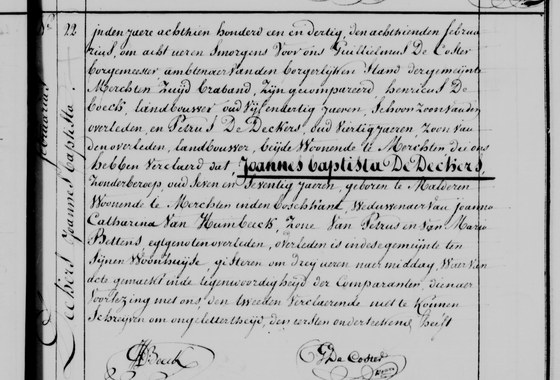 22
inden jaere achthien honderd een en dertig, den achthienden februa
rius, om acht ueren Smorgens Voor ons Guillielmus De Coster
borgemeester ambtenaer van den borgerlyken Stand der gemeijnte
Merchten Zuijd Braband, Zijn gecompareerd, henricus De
boeck, landbouwer, oud vijfendertig jaeren, Schoonzoon van den
overleden, en Petrus De Deckers, oud viertig jaeren, Zoon van
den overleden, landbouwer, beijde Woonende te Merchten die ons
hebben verclaerd dat, Joannes baptista De Deckers,
Zonder beroep, oud Seven en Seventig jaeren, geboren te Malderen
Woonende te Merchten inden boschkant, Weduwenaer van joanna
Catharina Van Humbeeck, Zone Van Petrus en van Maria
Bettens egtgenoten overleden, overleden is in dese gemeijnte ten
Sijnen Woonhuijse, gisteren om dreij ueren naer middag, Waer van
acte gemaekt in de tegenwoordigheijd der Comparanten, die naer
Voorlezing met ons, den tweeden verclaerende niet te konnen
Schreijven om ongelettertheijd, den eersten onderteekend heeft
HDBoeck
G De Coster
Deckers Joannes baptista
februarius